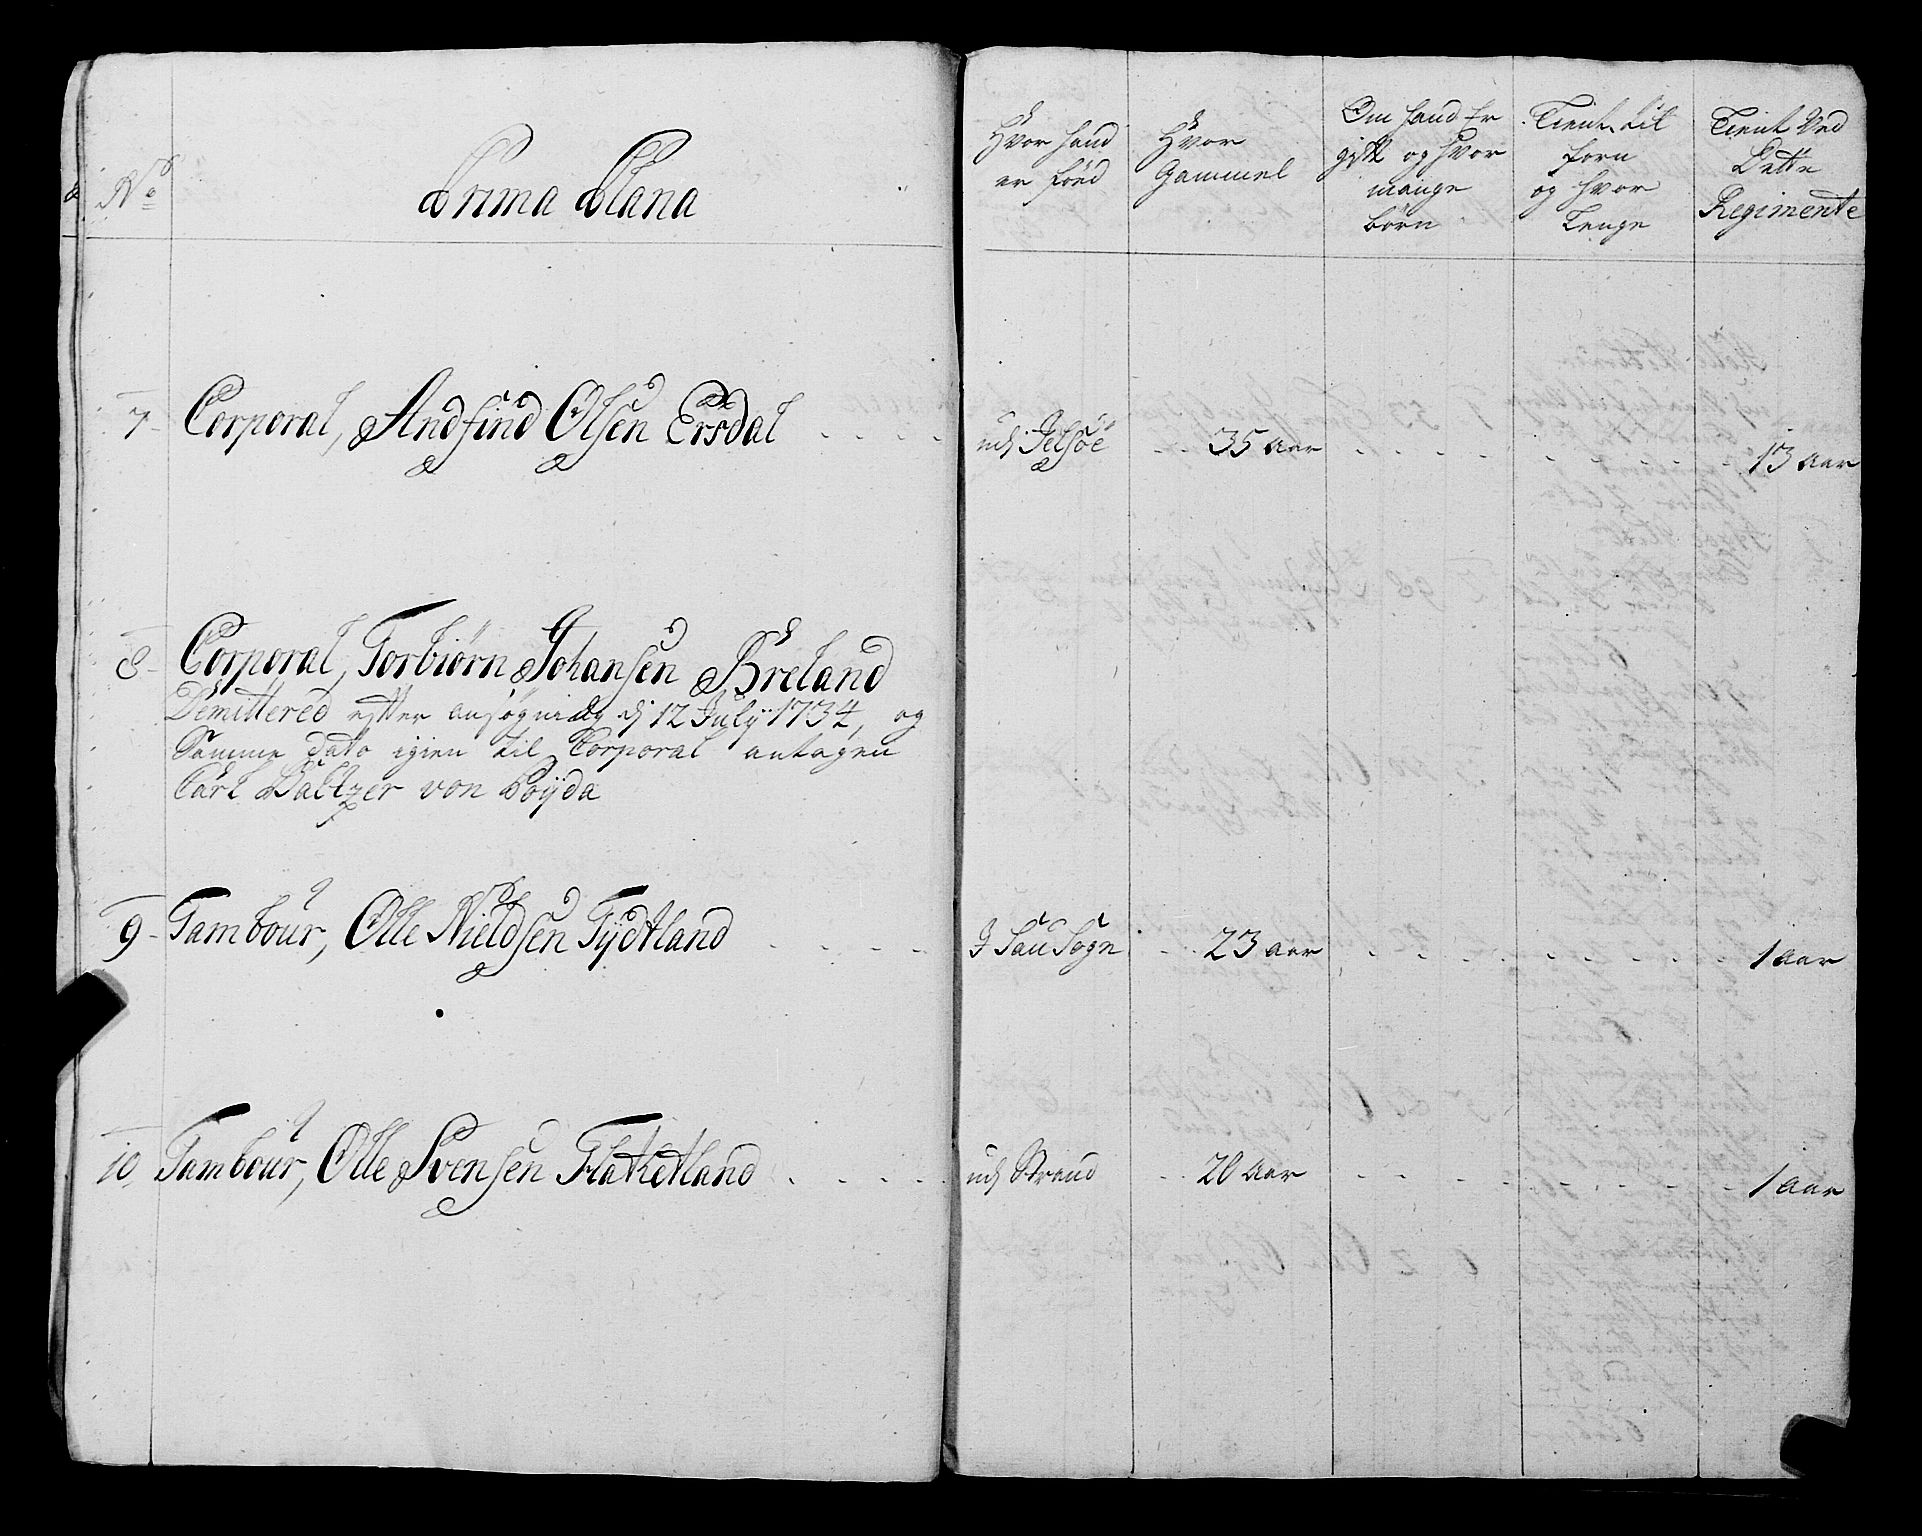 No
Prima Plana
Hvor hand
er föed
Hvor
Gammel
Om hand Er
gift og hvor
mange
börn
Tient til
forn
og hvor
Lenge
Tient Ved
Dette
Regimente
7 Corporal, Andfind Olsen Ersdal
ud Jelsöe 35 aar 13 aar
8 Corporal, Torbiörn Johansen Breland
Demittered efter ansögning d 12 July 1734, og
Samme dato igien til Corporal antagen
Carl Baltzer von Böyda
9 Tambour, Olle Nieldsen Tydtland
J Sau Sogn 23 aar 1 aar
10 Tambour, Olle Svensen Flaketland
ud Strand 20 aar 1 aar